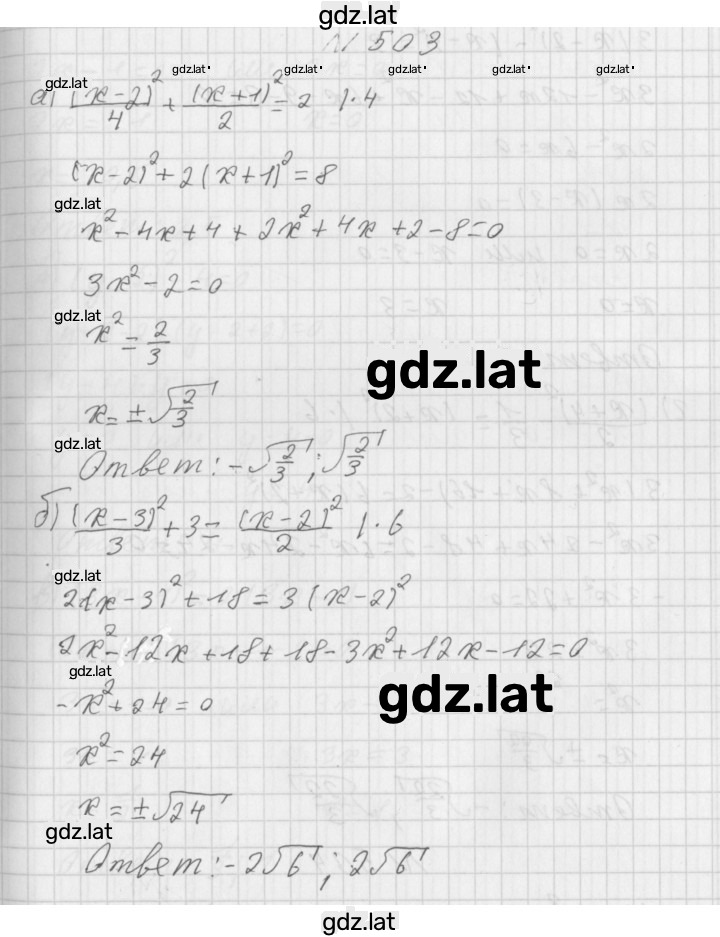 gdz.lat
N 503
gdz.lat gdz.lat gdz.lat gdz.lat gdz.lat
а) (x-2)²/4 + (x+1)²/2 = 2 |·4
(x-2)²+2(x+1)²=8
gdz.lat
x²-4x+4+2x²+4x+2-8=0
3x²-2=0
gdz.lat
x²=2/3
gdz.lat
x=±√2/3
gdz.lat
Ответ: -√2/3; √2/3
б) (x-3)²/3 + 3 = (x-2)²/2 |·6
gdz.lat
2(x-3)²+18=3(x-2)²
2x²-12x+18+18-3x²+12x-12=0
gdz.lat
-x²+24=0
gdz.lat
x²=24
x=±√24
gdz.lat
Ответ: -2√6; 2√6
gdz.lat